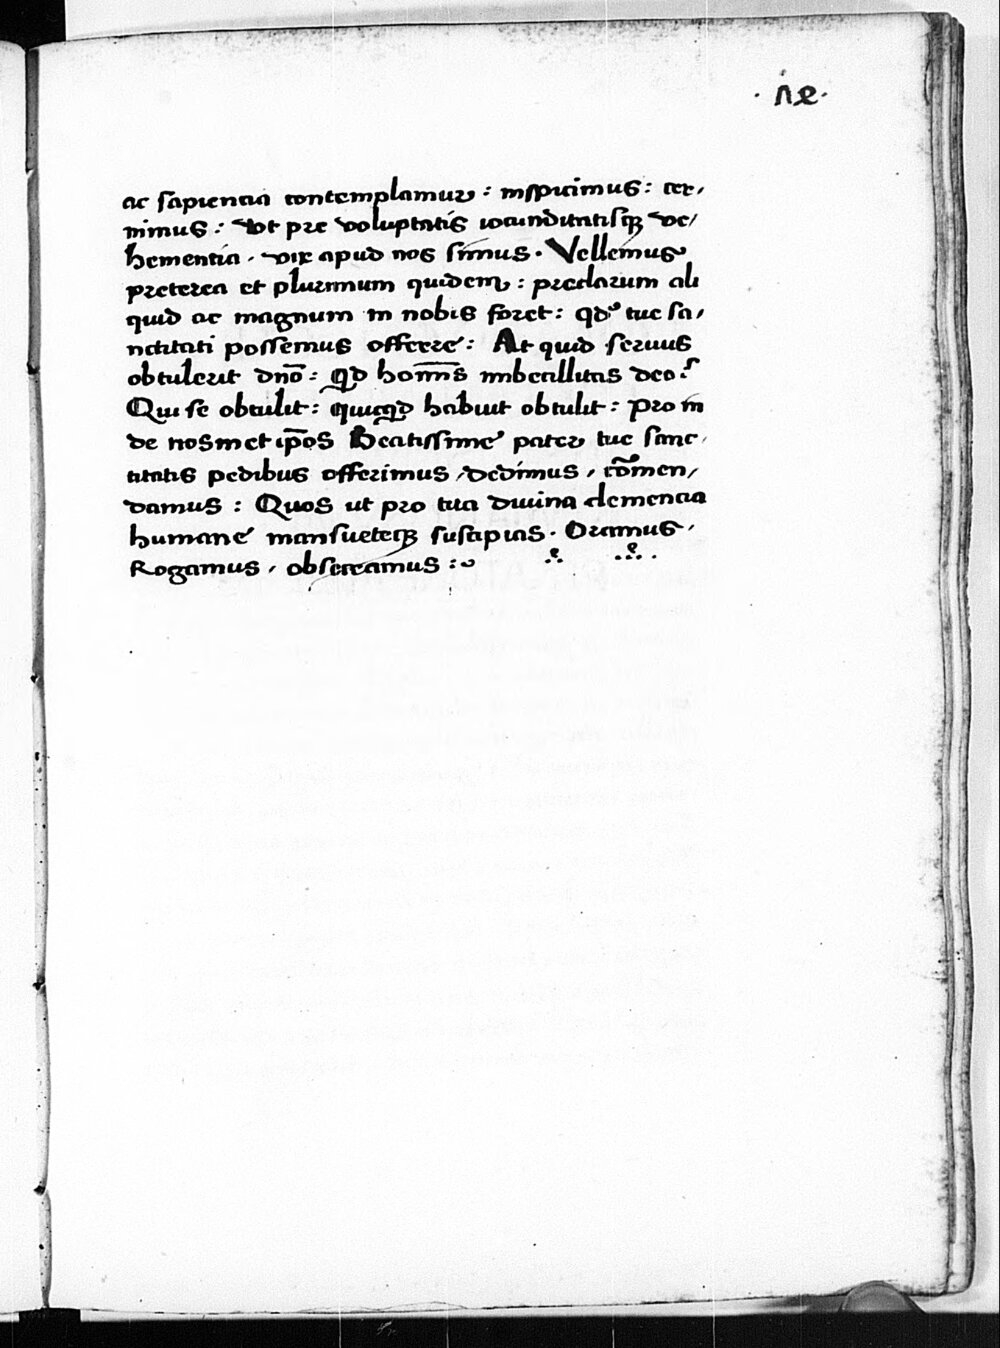 ac sapiencia contemplamur : inspicimus : cer,
nimus : Vt pre voluptatis iocunditatisqꝫ ve,
hementia, vix apud nos simus. Vellemus
preterea et plurimum quidem : preclarum ali
quid ac magnum in nobis foret : qd tue sa,
nctitati possemus offerre : At quid seruus
obtulerit dn̄o : Qd hoīnīs imbecillitas deo?
Qui se obtulit : quicqd habuit obtulit : Pro in
de nosmet ip̄os Beatissime pater tue sanc,
titatis pedibus offerimus, dedimus, com̄en,
damus : Quos ut pro tua diuina clemencia
humane mansueteqꝫ suscipias. Oramus,
Rogamus, obsecramus :